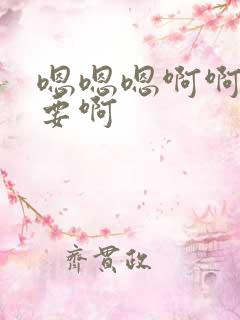 嗯嗯嗯啊啊
要啊
齐贯政